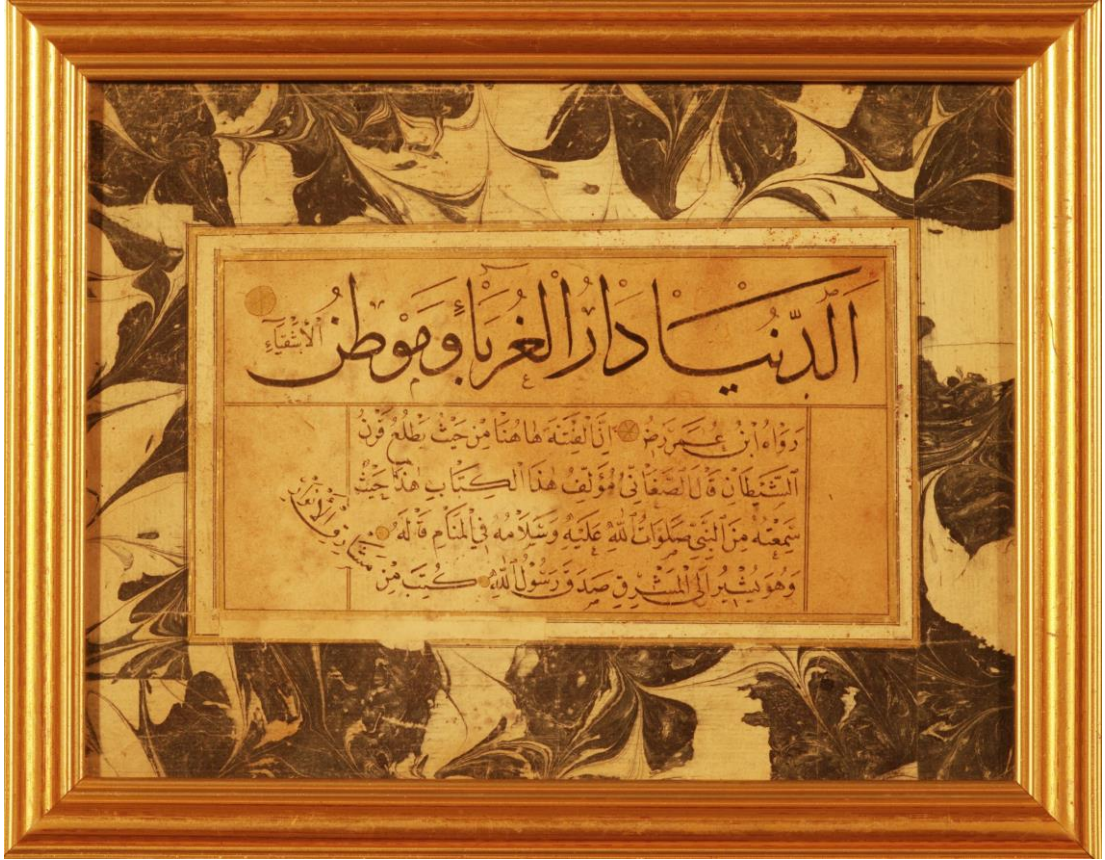 اَلدُّنْيَا دَارُ الْغُرَبَاءِ وَمَوْطِنُ الْأَشْقِيَاءِ
رَوَاهُ ابْنُ عُمَرَ رَضِ اِنَّ الْفِتْنَةَ هَاهُنَا مِنْ حَيْثُ يَطْلُعُ قَرْنُ
الشَّيْطَانِ قَالَ الصَّغَانِيُّ مُؤَلِّفُ هٰذَا الْكِتَابِ هٰذَا حَيْثُ
سَمِعْتُهُ مِنَ النَّبِيِّ صَلَوَاتُ اللّٰهِ عَلَيْهِ وَسَلَامُهُ فِي الْمَنَامِ قَالَهُ
وَهُوَ يُشِيرُ اِلَى الْمَشْرِقِ صَدَقَ رَسُولُ اللّٰهِ كُتِبَ مِنْ
مَشَارِقِ الْأَنْوَارِ